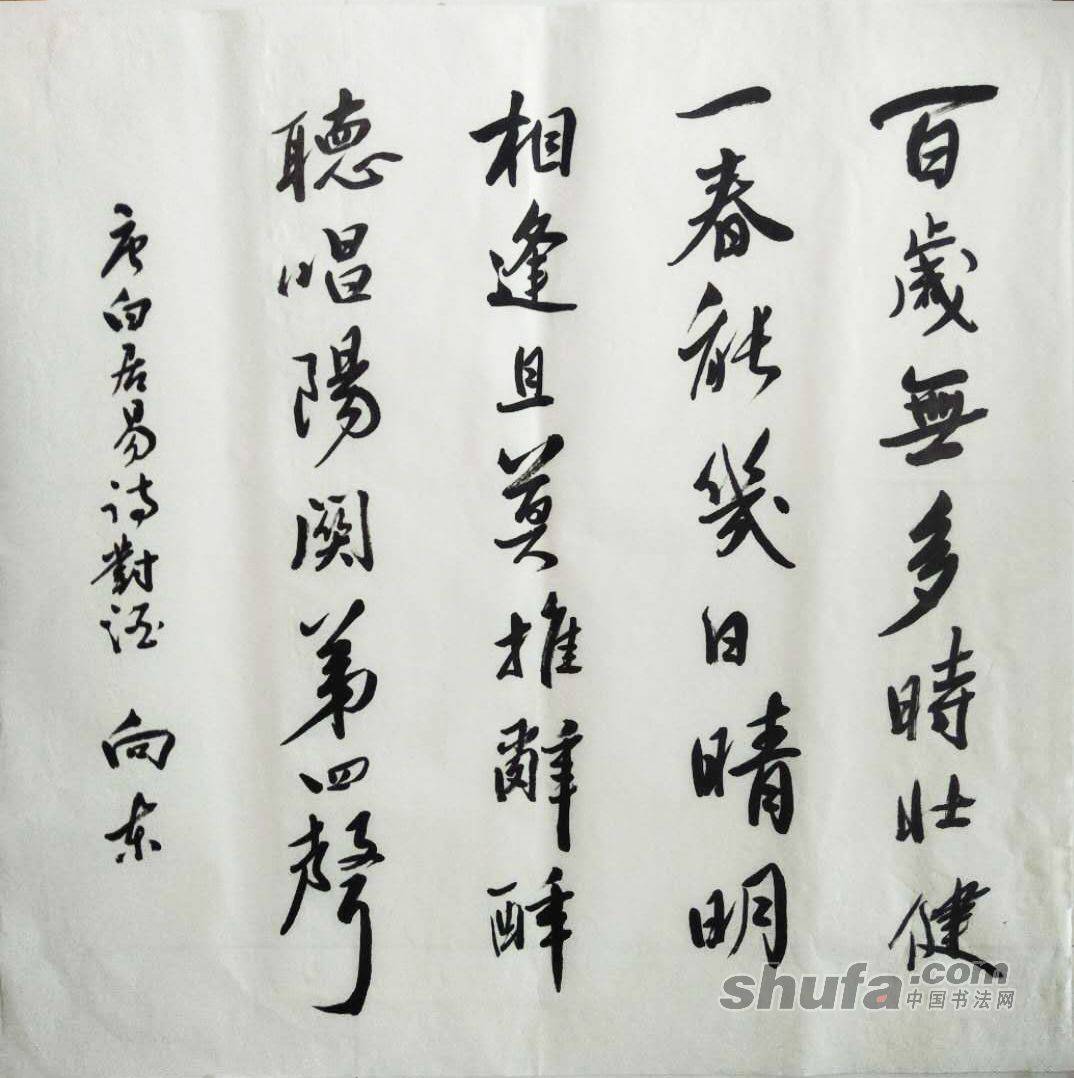 百歲無多時壯健
一春能幾日晴明
相逢且莫推辭醉
聽唱陽關第四聲
唐白居易詩對酒 向東
shufa.com
中国书法网